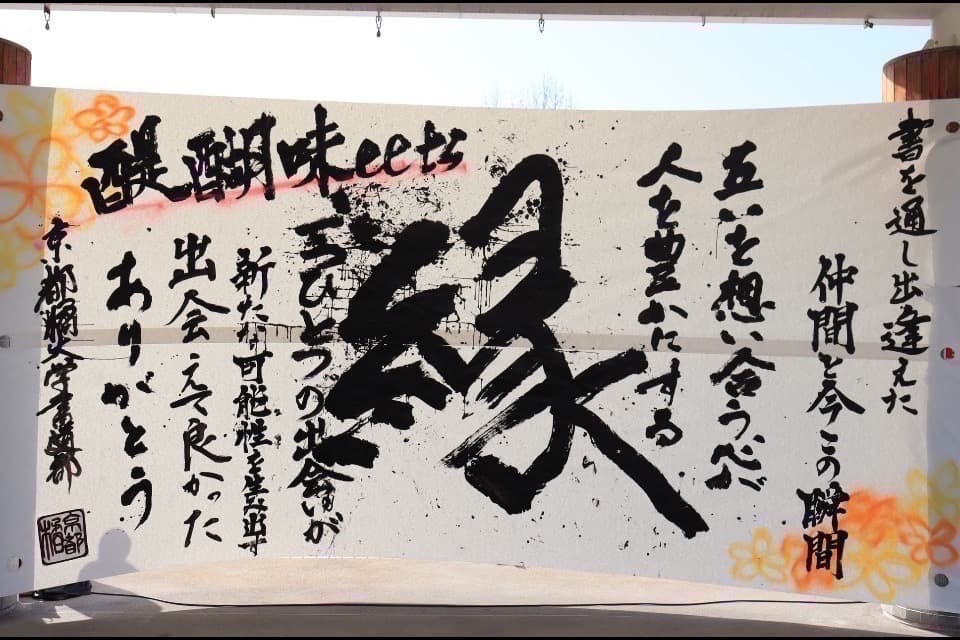 書を通し出逢えた
仲間と今この瞬間
互いを想い合う心が
人を豊かにする
縁
一つひとつの出会いが
新たな可能性を生み出す
出会えて良かった
ありがとう
醍醐味eets
京都橘大学書道部
京都橘